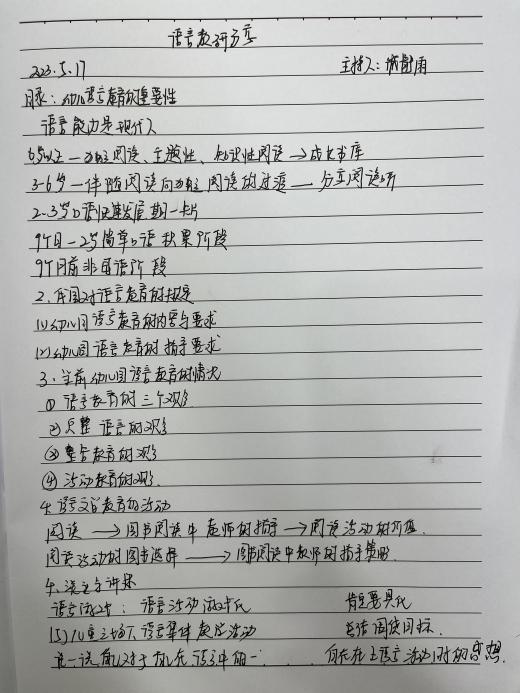 语言教研方案
2023.5.17 主持人:
目录:幼儿语言教育的重要性
语言能力是现代人
6岁以上—自主阅读、主题性、知识性阅读→成长书库
3-6岁—伴随阅读向自主阅读的过渡—分立阅读
2-3岁口语快速发展期—卡片
9个月—2岁简单口语积累阶段
9个月前非母语阶段
2.我国对语言教育的规定
(1)幼儿园语言教育的内容与要求
(2)幼儿园语言教育的指导要求
3.当前幼儿园语言教育的情况
①语言教育的三个观念
②完整语言的观念
③整合教育的观念
④活动教育的观念
4.语言文学教育的活动
阅读→图书阅读中老师的指导→阅读活动的价值
阅读活动的图书选择→图书阅读中教师的指导策略
4.说与讲述
语言谈话:语言活动谈话 肯定要具化
(5)儿童 语言集体教学活动 总结围绕目标
说一说 在语言中的 语言活动时的感想.